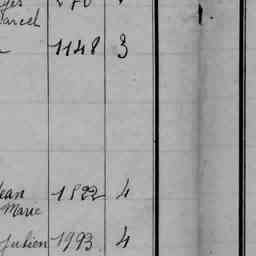 arcel
1148 3
Jean 1822 4
Marie
Julien 1993 4